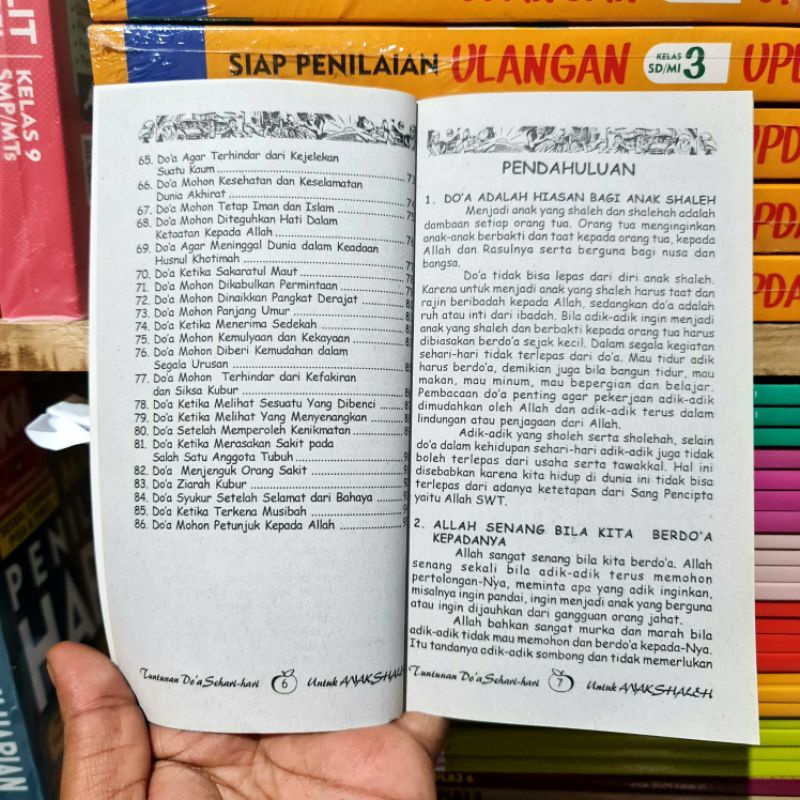 LIT
KELAS 9
SMP/MTs
SIAP PENILAIAN ULANGAN KELAS SD/MI 3
65. Do'a Agar Terhindar dari Kejelekan
Suatu Kaum
66. Do'a Mohon Kesehatan dan Keselamatan
Dunia Akhirat
67. Do'a Mohon Tetap Iman dan Islam
68. Do'a Mohon Diteguhkan Hati Dalam
Ketaatan Kepada Allah
69. Do'a Agar Meninggal Dunia dalam Keadaan
Husnul Khotimah
70. Do'a Ketika Sakaratul Maut
71. Do'a Mohon Dikabulkan Permintaan
72. Do'a Mohon Dinaikkan Pangkat Derajat
73. Do'a Mohon Panjang Umur
74. Do'a Ketika Menerima Sedekah
75. Do'a Mohon Kemulyaan dan Kekayaan
76. Do'a Mohon Diberi Kemudahan dalam
Segala Urusan
77. Do'a Mohon Terhindar dari Kefakiran
dan Siksa Kubur
78. Do'a Ketika Melihat Sesuatu Yang Dibenci
79. Do'a Ketika Melihat Yang Menyenangkan
80. Do'a Setelah Memperoleh Kenikmatan
81. Do'a Ketika Merasakan Sakit pada
Salah Satu Anggota Tubuh
82. Do'a Menjenguk Orang Sakit
83. Do'a Ziarah Kubur
84. Do'a Syukur Setelah Selamat dari Bahaya
85. Do'a Ketika Terkena Musibah
86. Do'a Mohon Petunjuk Kepada Allah
Tuntunan Do'a Sehari-hari 6 Untuk ANAK SHALEH
PENDAHULUAN
1. DO'A ADALAH HIASAN BAGI ANAK SHALEH
Menjadi anak yang shaleh dan shalehah adalah
dambaan setiap orang tua. Orang tua menginginkan
anak-anak berbakti dan taat kepada orang tua, kepada
Allah dan Rasulnya serta berguna bagi nusa dan
bangsa.
Do'a tidak bisa lepas dari diri anak shaleh.
Karena untuk menjadi anak yang shaleh harus taat dan
rajin beribadah kepada Allah, sedangkan do'a adalah
ruh atau inti dari ibadah. Bila adik-adik ingin menjadi
anak yang shaleh dan berbakti kepada orang tua harus
dibiasakan berdo'a sejak kecil. Dalam segala kegiatan
sehari-hari tidak terlepas dari do'a. Mau tidur adik
harus berdo'a, demikian juga bila bangun tidur, mau
makan, mau minum, mau bepergian dan belajar.
Pembacaan do'a penting agar pekerjaan adik-adik
dimudahkan oleh Allah dan adik-adik terus dalam
lindungan atau penjagaan dari Allah.
Adik-adik yang sholeh serta sholehah, selain
do'a dalam kehidupan sehari-hari adik-adik juga tidak
boleh terlepas dari usaha serta tawakkal. Hal ini
disebabkan karena kita hidup di dunia ini tidak bisa
terlepas dari adanya ketetapan dari Sang Pencipta
yaitu Allah SWT.
2. ALLAH SENANG BILA KITA BERDO'A
KEPADANYA
Allah sangat senang bila kita berdo'a. Allah
senang sekali bila adik-adik terus memohon
pertolongan-Nya, meminta apa yang adik inginkan,
misalnya ingin pandai, ingin menjadi anak yang berguna
atau ingin dijauhkan dari gangguan orang jahat.
Allah bahkan sangat murka dan marah bila
adik-adik tidak mau memohon dan berdo'a kepada-Nya.
Itu tandanya adik-adik sombong dan tidak memerlukan
Tuntunan Do'a Sehari-hari 7 Untuk ANAK SHALEH